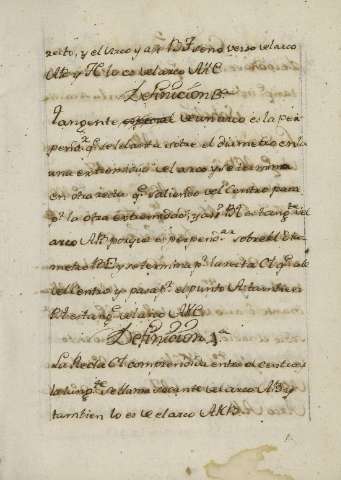 recto, y el arco y asi BF seno verso del arco
AB y H lo es del arco AKE
Definicion 3ª
Tangente de un arco es la per
penᵃʳ qᵉ se lebanta sobre el diametro en la
una extremidad del arco y se termina
en otra recta qᵉ saliendo del Centro pasa
pʳ la otra extremidad; y asi BI es tangᵗᵉ del
arco AB porque es perpenᵃʳ sobre el Dia
metro BE y se termina pʳ la recta CI qᵉ sale
del Centro y pasa pʳ el punto A tambien
BI es tangᵗᵉ del arco AKE
Definicion 4ª
La Recta CI comprendida entre el centro y
la tangᵗᵉ se llama secante del arco AB y
tambien lo es de el arco AKE